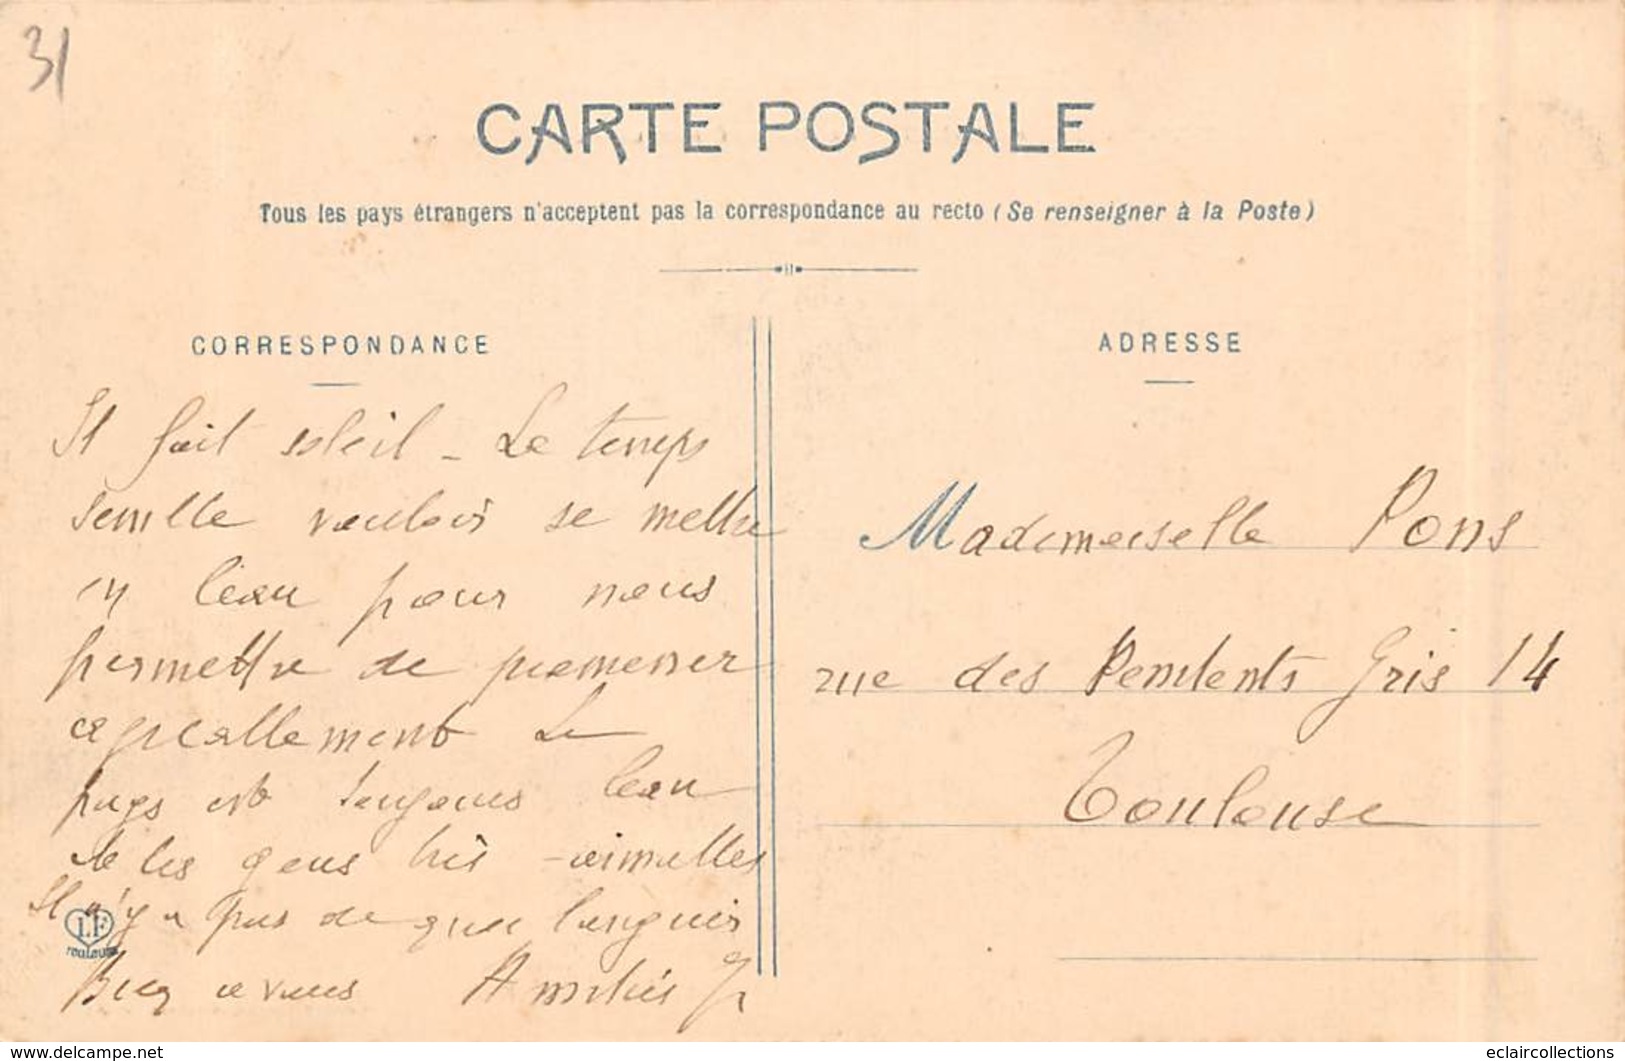 31
CARTE POSTALE
Tous les pays étrangers n'acceptent pas la correspondance au recto (Se renseigner à la Poste)
CORRESPONDANCE
Il fait soleil - Le temps
semble vouloir se mettre
en beau pour nous
permettre de promener
agréablement Le
pays est toujours beau
et les gens très aimables
Il n'y a pas de quoi languir
Bien a vous
LF
TOULOUSE
ADRESSE
Mademoiselle Pons
rue des Penitents Gris 14
Toulouse
www.delcampe.net
eclaircollections